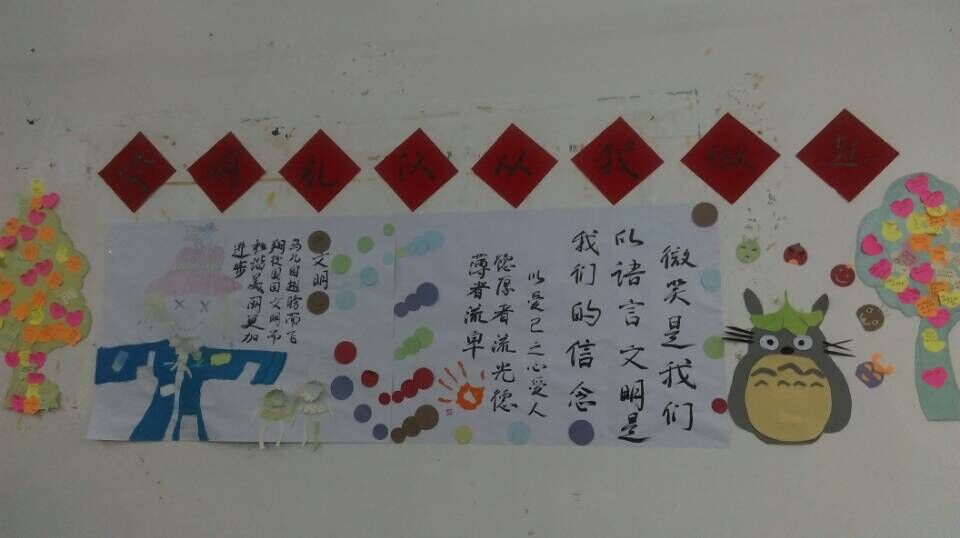 文明礼仪从我做起
微笑是我们
以语言文明是
我们的信念
以爱己之心爱人
德厚者流光德
薄者流卑
文明
鸟儿因翅膀而飞
翔校园因文明而
和谐美丽更加
进步